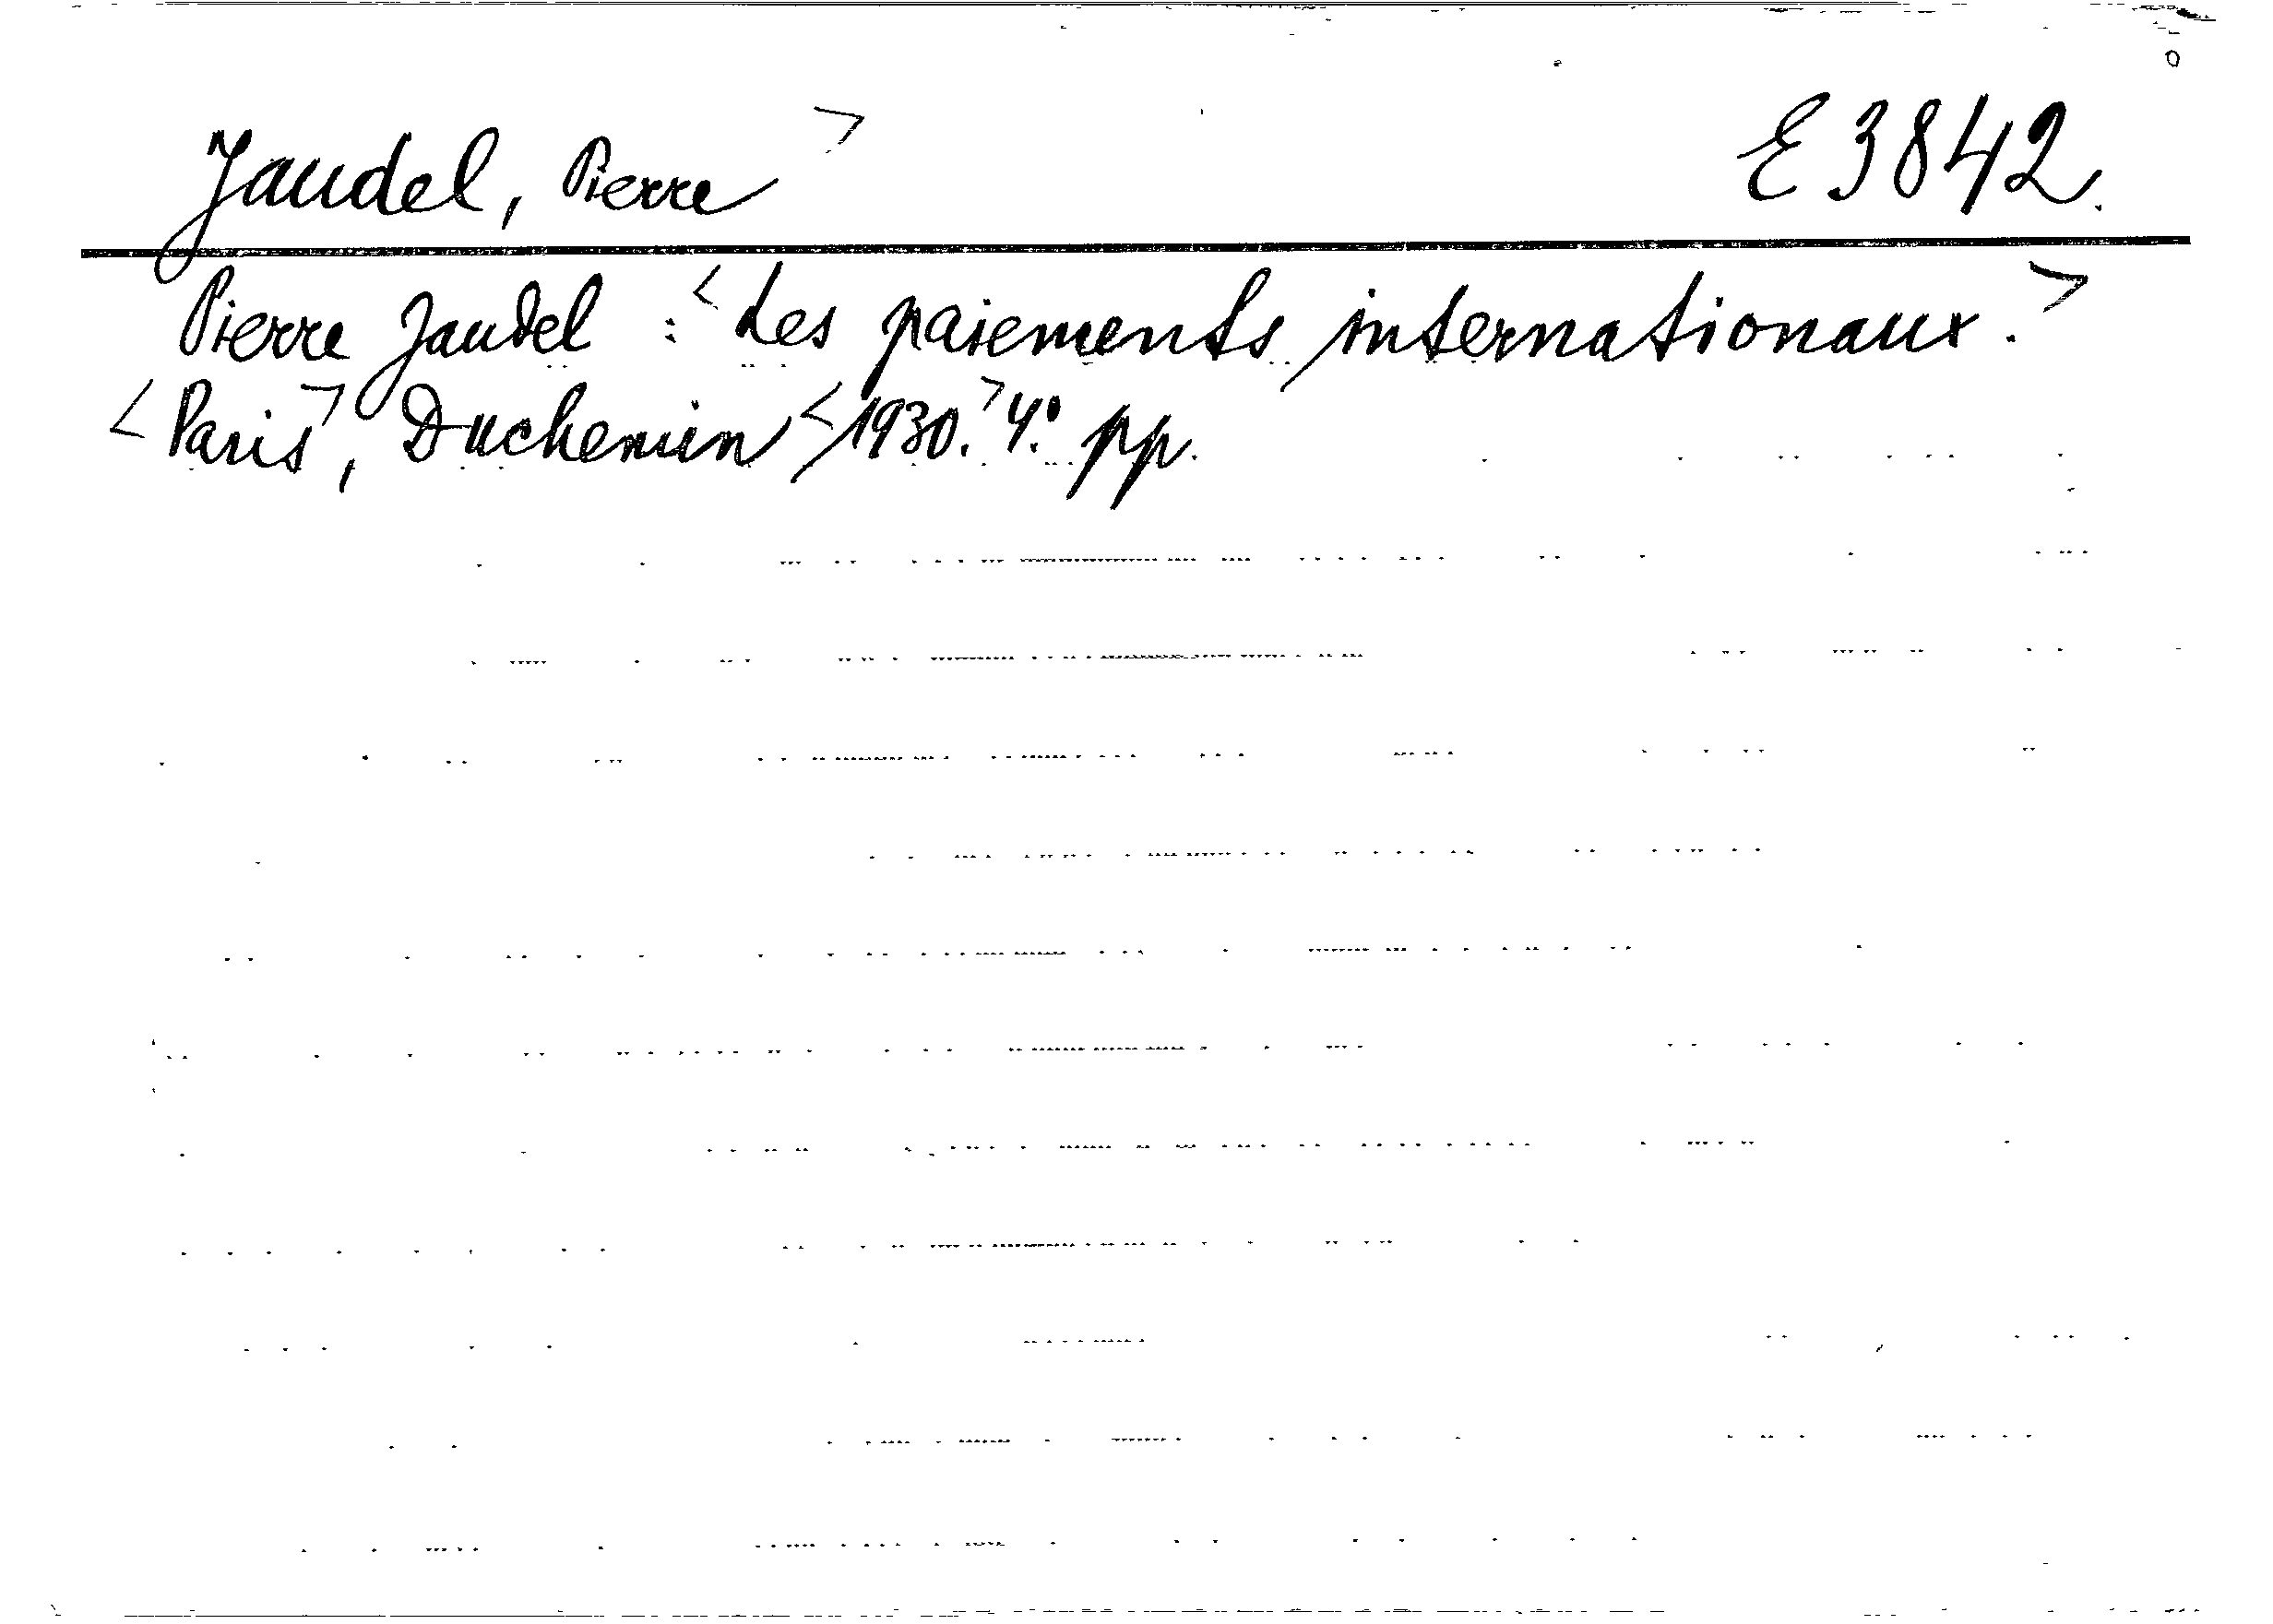 Jaudel, Pierre> E 3842.
Pierre Jaudel : <Les paiements internationaux.>
<Paris>, Duchemin <1930.> 4° pp.